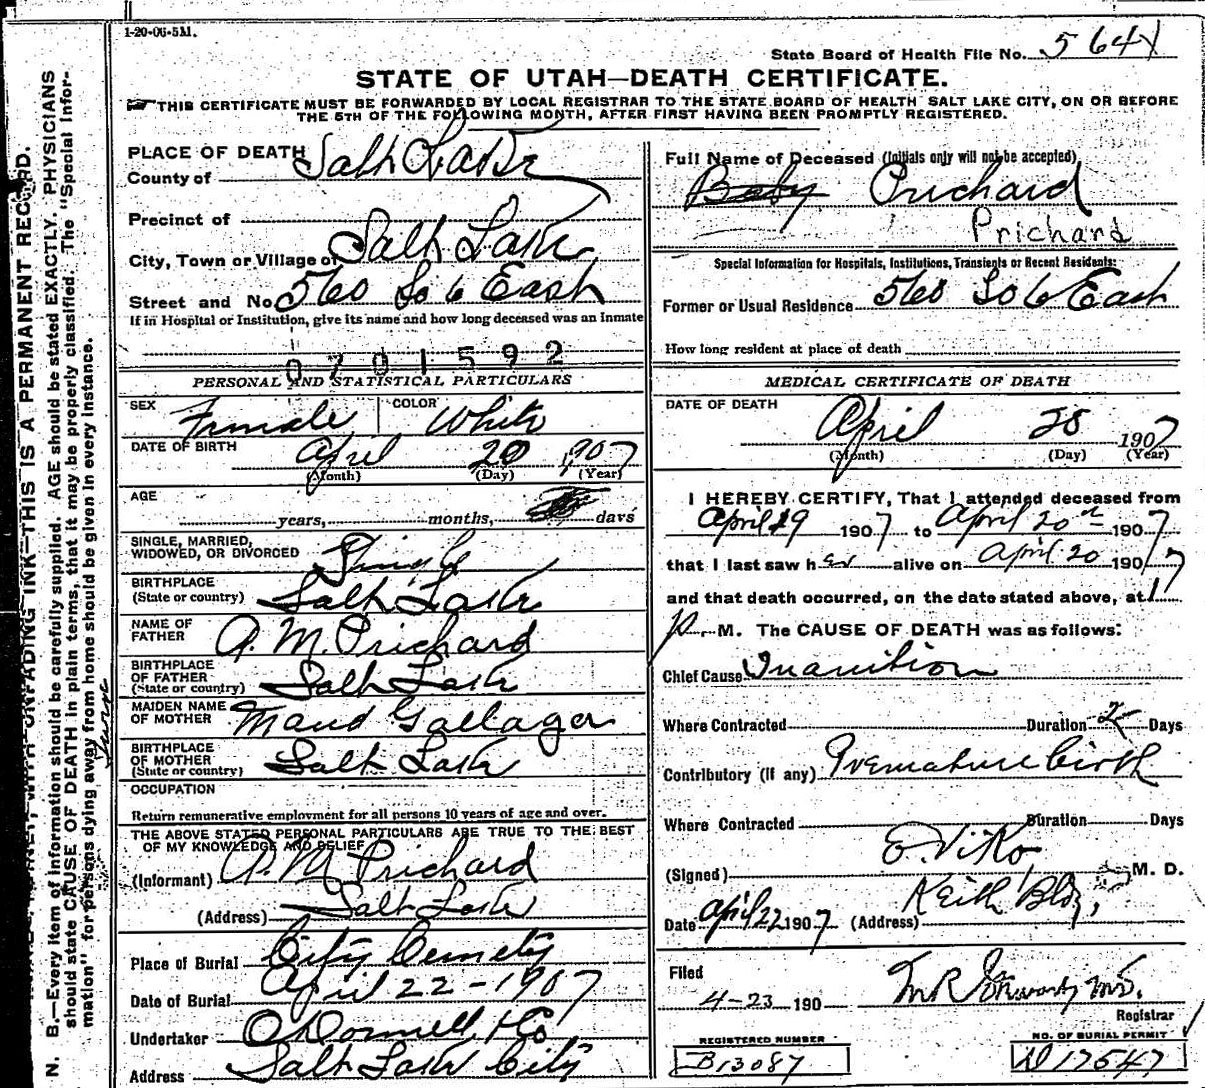 1-20-06-5M.
State Board of Health File No. 564
STATE OF UTAH—DEATH CERTIFICATE.
THIS CERTIFICATE MUST BE FORWARDED BY LOCAL REGISTRAR TO THE STATE BOARD OF HEALTH SALT LAKE CITY, ON OR BEFORE
THE 5TH OF THE FOLLOWING MONTH, AFTER FIRST HAVING BEEN PROMPTLY REGISTERED.
PLACE OF DEATH
County of Salt Lake
Precinct of
City, Town or Village of Salt Lake
Street and No. 560 So 6 East
If in Hospital or Institution, give its name and how long deceased was an Inmate
0701592
PERSONAL AND STATISTICAL PARTICULARS
SEX Female COLOR White
DATE OF BIRTH April 20 1907
(Month) (Day) (Year)
AGE
years, months, days
SINGLE, MARRIED,
WIDOWED, OR DIVORCED Single
BIRTHPLACE
(State or country) Salt Lake
NAME OF
FATHER A. M. Prichard
BIRTHPLACE
OF FATHER
(State or country) Salt Lake
MAIDEN NAME
OF MOTHER Maud Gallager
BIRTHPLACE
OF MOTHER
(State or country) Salt Lake
OCCUPATION
Return remunerative employment for all persons 10 years of age and over.
THE ABOVE STATED PERSONAL PARTICULARS ARE TRUE TO THE BEST
OF MY KNOWLEDGE AND BELIEF
(Informant) A. M. Prichard
(Address) Salt Lake
Place of Burial City Cemety
Date of Burial April 22-1907
Undertaker O'Donnell & Co
Address Salt Lake City
Full Name of Deceased (Initials only will not be accepted)
Baby Prichard
Prichard
Special Information for Hospitals, Institutions, Transients or Recent Residents:
Former or Usual Residence 560 So 6 East
How long resident at place of death
MEDICAL CERTIFICATE OF DEATH
DATE OF DEATH
April 20 1907
(Month) (Day) (Year)
I HEREBY CERTIFY, That I attended deceased from
April 19 1907 to April 20th 1907
that I last saw her alive on April 20 1907
and that death occurred, on the date stated above, at
p. M. The CAUSE OF DEATH was as follows:
Chief Cause Inanition
Where Contracted Duration 2 Days
Contributory (if any) Premature birth
Where Contracted Duration Days
(Signed) E. Viko M. D.
Date April 22 1907 (Address) Keith Bldg,
Filed
4-23-190 M.R. M.D.
Registrar
REGISTERED NUMBER
B13087
NO. OF BURIAL PERMIT
17547
N. B.—Every item of information should be carefully supplied. AGE should be stated EXACTLY. PHYSICIANS
should state CAUSE OF DEATH in plain terms, that it may be properly classified. The "Special Infor-
mation" for persons dying away from home should be given in every instance.
UNFADING INK—THIS IS A PERMANENT RECORD.